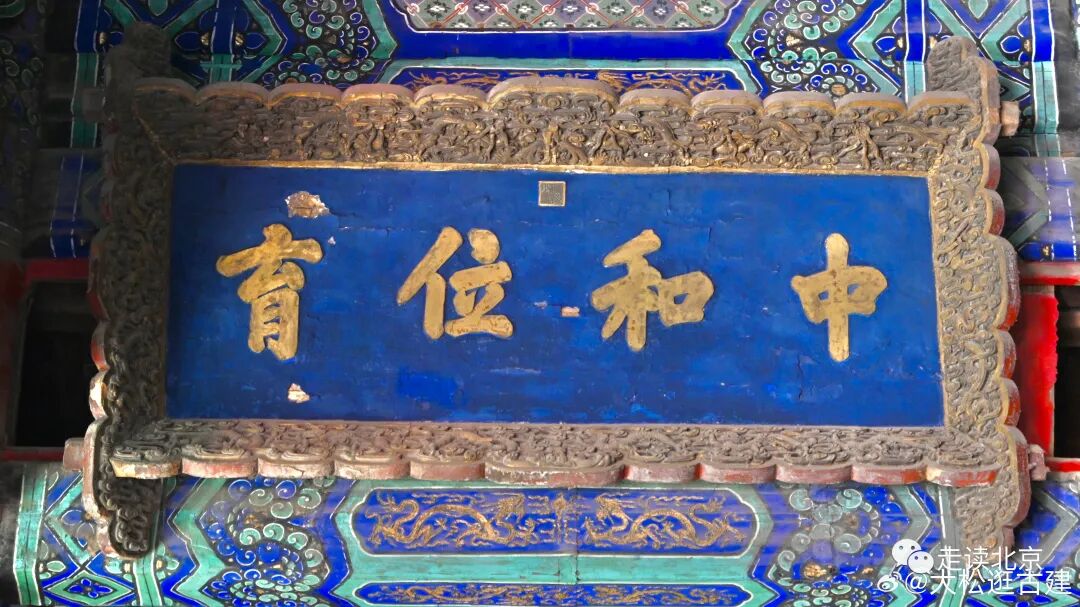 中和位育
走读北京
@大松逛古建